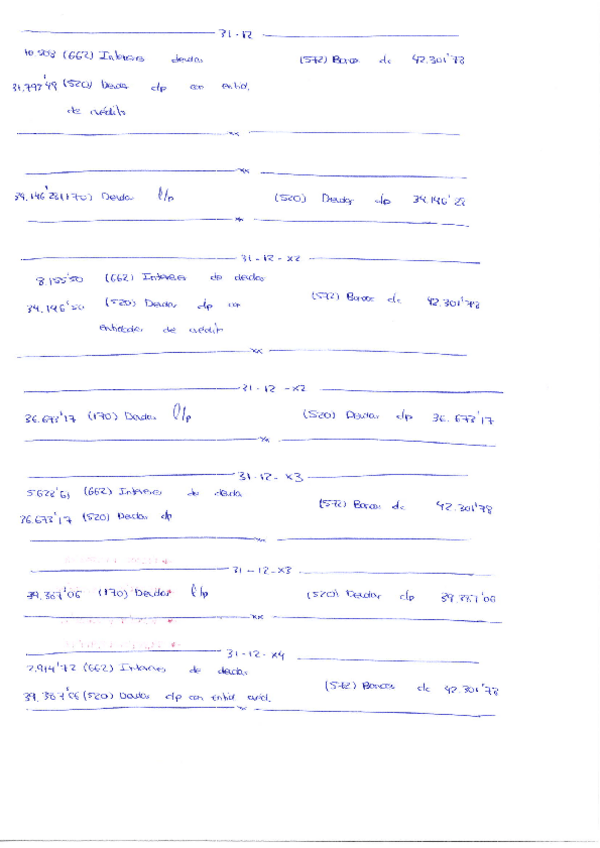 31-12
10.508 (662) Intereses deudas (572) Bancos c/c 42.301'78
31.793'48 (520) Deudas c/p con entid.
de crédito
xx
xx
34.146'28 (170) Deudas l/p (520) Deudas c/p 34.146'28
xx
31-12-x2
8.155'50 (662) Intereses de deudas
(572) Bancos c/c 42.301'78
34.146'50 (520) Deudas c/p con
entidades de crédito
xx
31-12-x2
36.673'17 (170) Deudas l/p (520) Deudas c/p 36.673'17
xx
31-12-x3
5628'61 (662) Intereses de deuda
(572) Bancos c/c 42.301'78
36.673'17 (520) Deudas c/p
xx
31-12-x3
39.387'06 (170) Deudas l/p (520) Deudas c/p 39.387'06
xx
31-12-x4
2.914'72 (662) Intereses de deudas
(572) Bancos c/c 42.301'78
39.387'06 (520) Deudas c/p con entid. cred.
xx